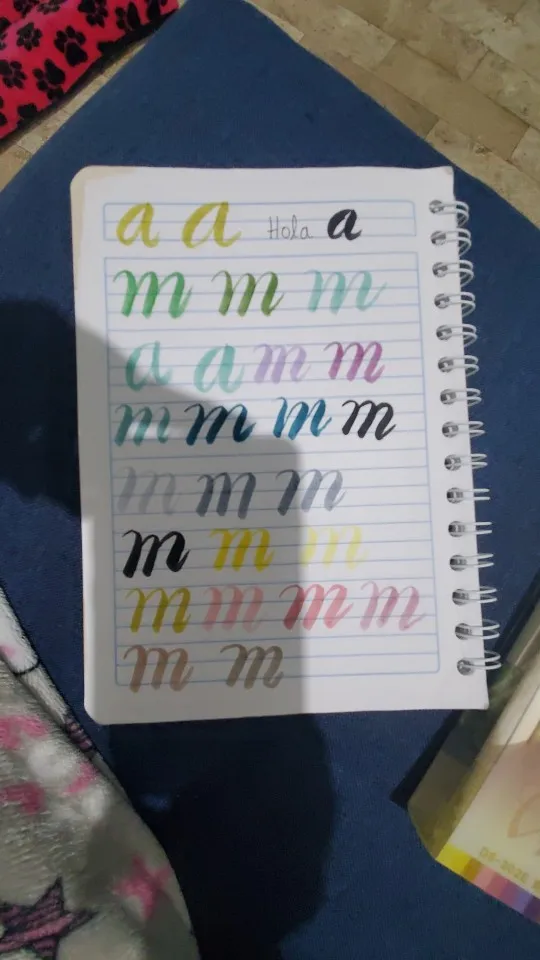 a a Hola a
m m m
a a m m
m m m m
m m m
m m m
m m m m
m m